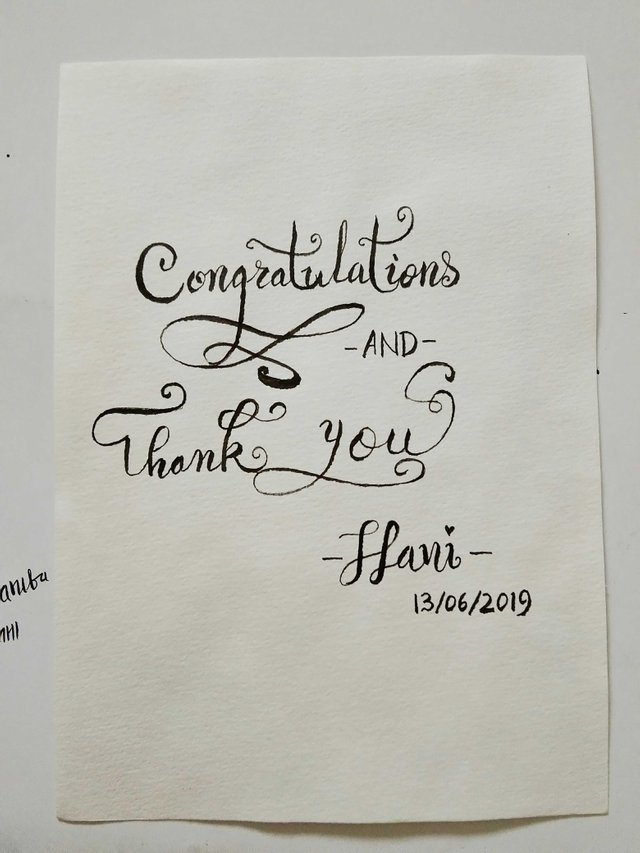 Congratulations
-AND-
Thank you
-Hani-
13/06/2019